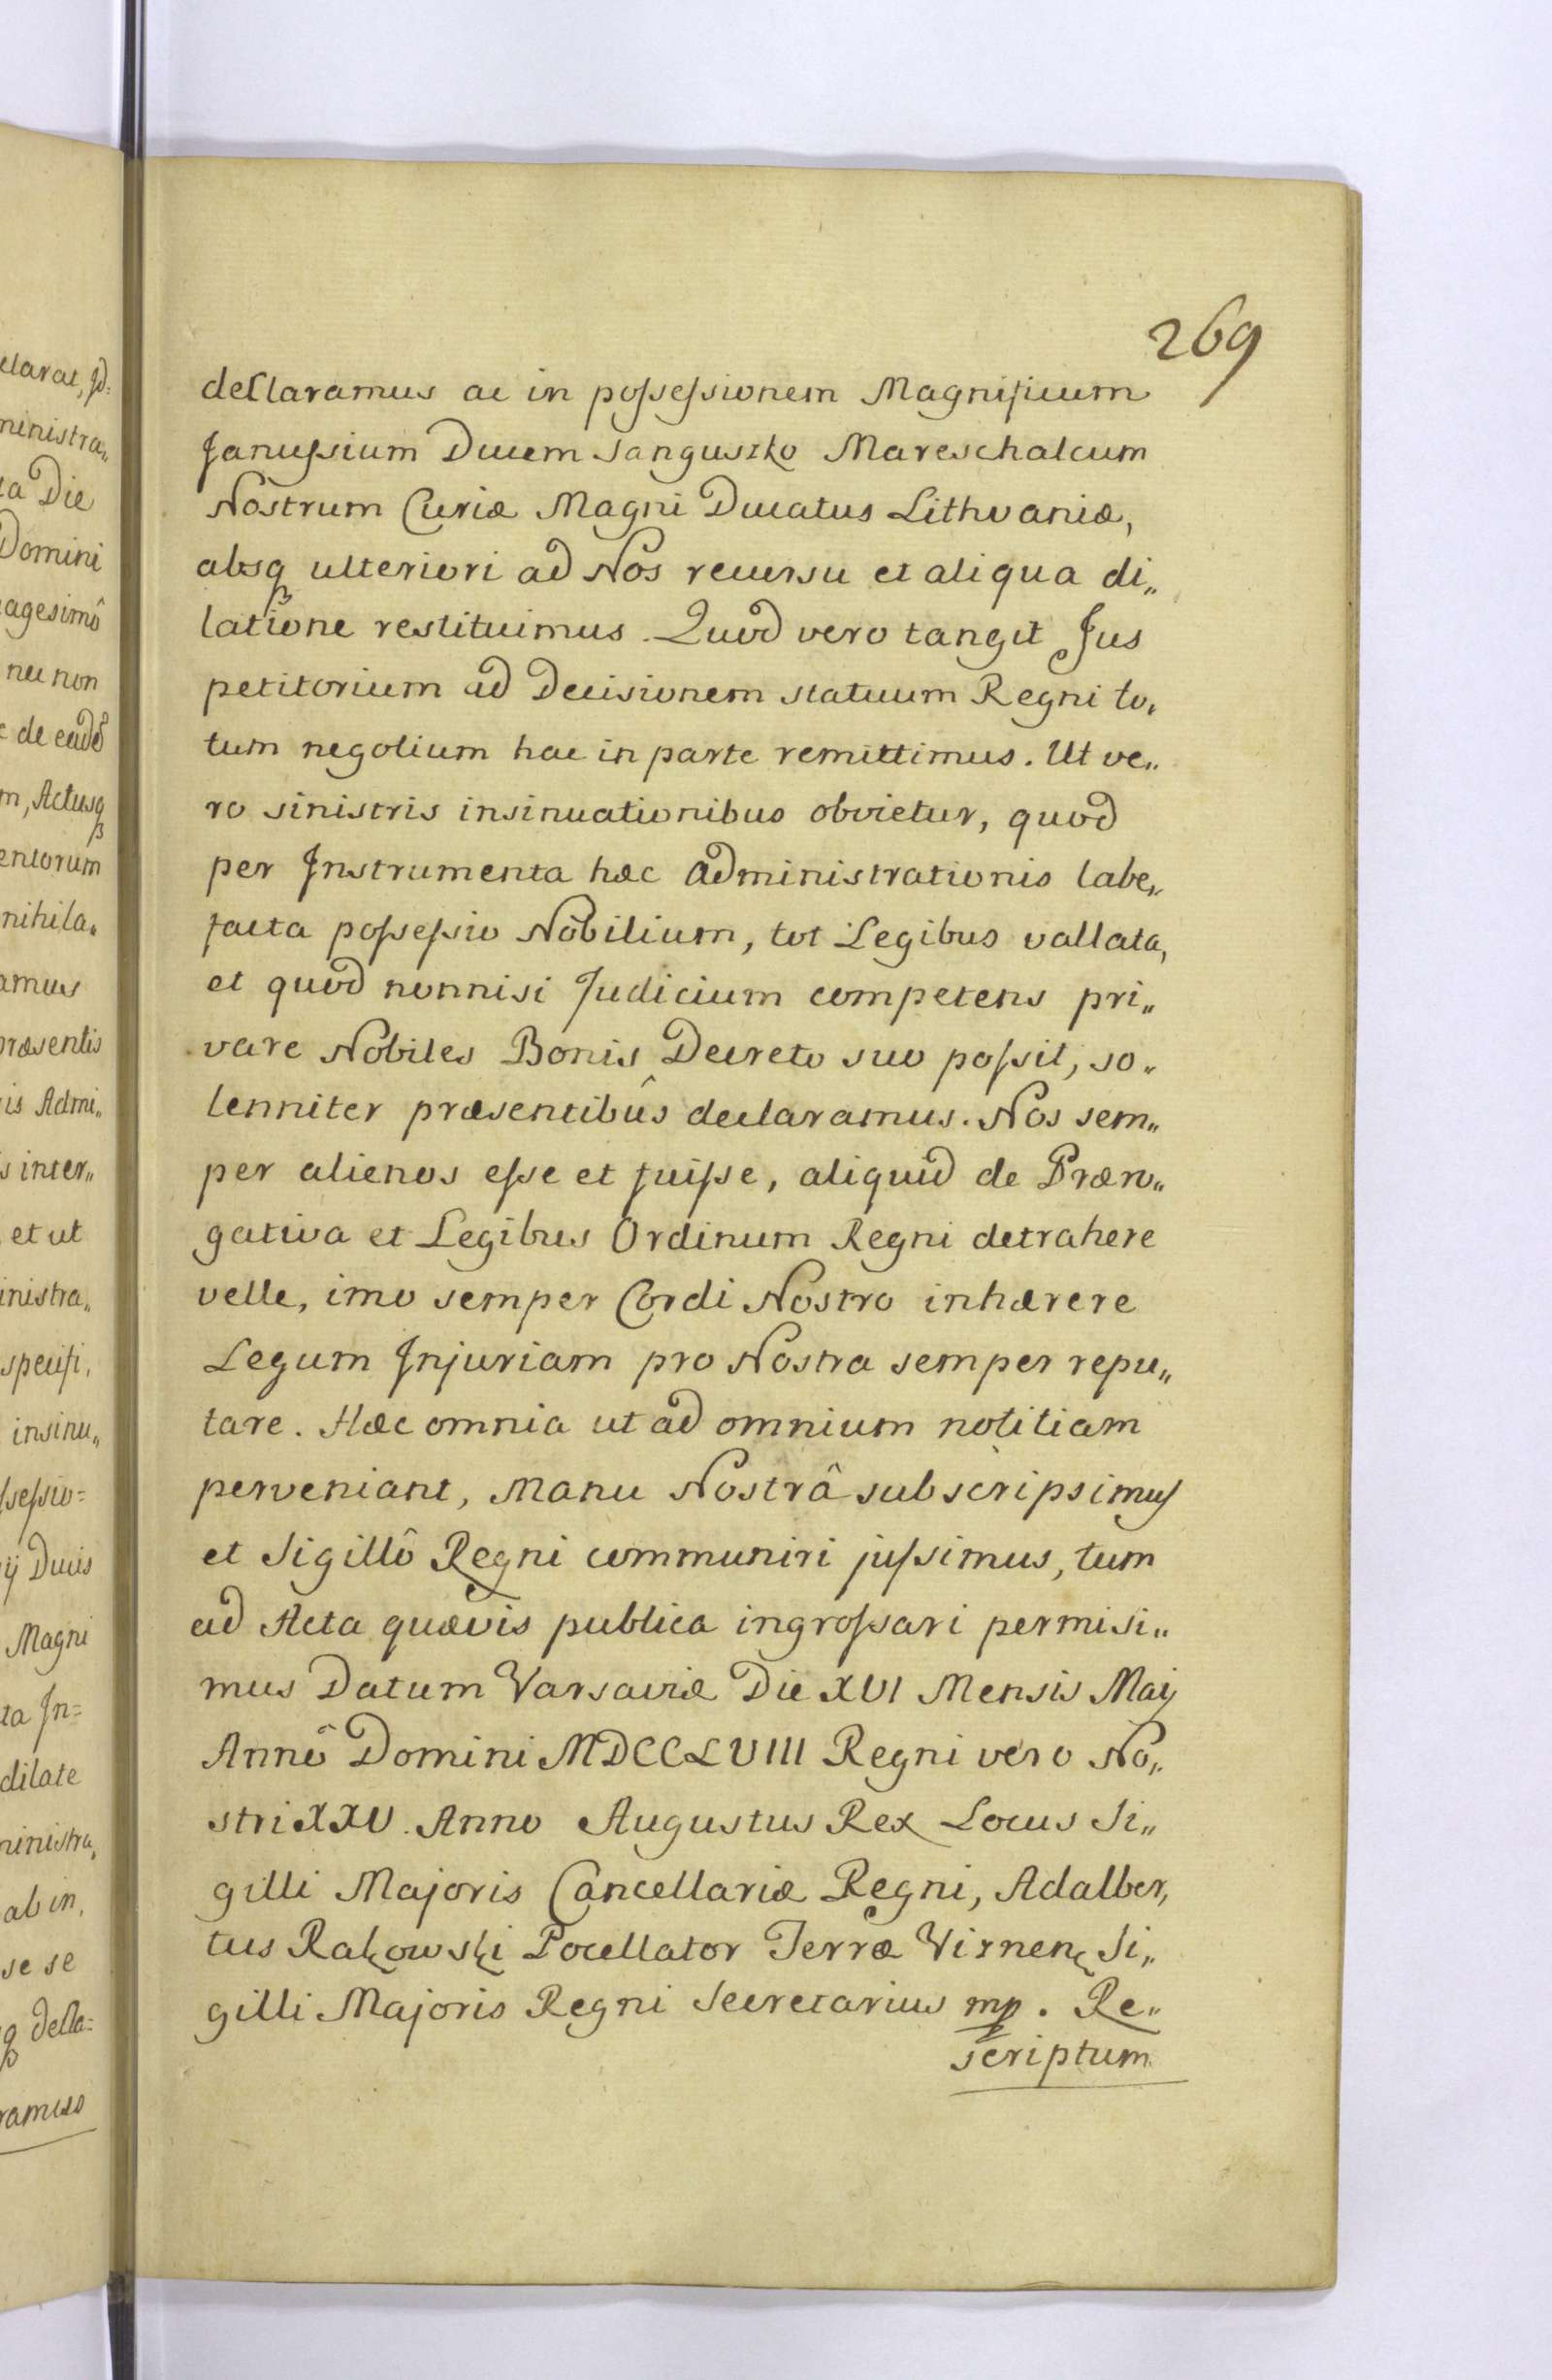 269
declaramus ac in possessionem Magnificum
Janussium Ducem Sanguszko Mareschalcum
Nostrum Curiæ Magni Ducatus Lithvaniæ,
absq ulteriori ad Nos recursu et aliqua di„
latione restituimus. Quod vero tangit Jus
petitorium ad Decisionem statuum Regni to„
tum negotium hac in parte remittimus. Ut ve„
ro sinistris insinuationibus obvietur, quod
per Instrumenta hæc administrationis labe„
facta possessio Nobilium, tot Legibus vallata,
et quod nonnisi Judicium competens pri„
vare Nobiles Bonis Decreto suo possit, so„
lenniter præsentibûs declaramus. Nos sem„
per alienos esse et fuisse, aliquid de Præro„
gativa et Legibus Ordinum Regni detrahere
velle, imo semper Cordi Nostro inhærere
Legum Injuriam pro Nostra semper repu„
tare. Hæc omnia ut ad omnium notitiam
perveniant, Manu Nostrâ subscripsimus
et Sigillô Regni communiri jussimus, tum
ad Acta quævis publica ingrossari permisi„
mus Datum Varsaviæ Die XVI Mensis Maij
Annô Domini MDCCLVIII Regni vero No„
stri XXV. Anno Augustus Rex Locus Si„
gilli Majoris Cancellariæ Regni, Adalber„
tus Rakowski Pocellator Terræ Viznen Si„
gilli Majoris Regni Secretarius mp. Re„
scriptum
clarat,
ministra„
ta Die
Domini
agesimô
nec non
c de eadê
m, Actusq
entorum
nihila„
amus
præsentis
is Admi„
s inter„
et ut
inistra„
specifi„
insinu„
ssessio=
ij Ducis
Magni
ta In=
dilate
ministra„
ab in„
se se
q decla=
ramus